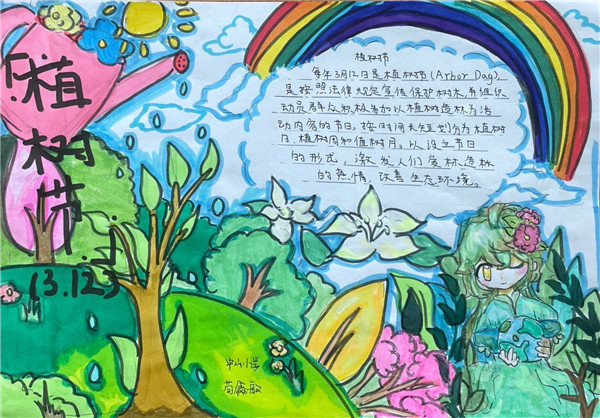 「植树节」
(3.12)
植树节
每年3月12日是植树节(Arbor Day),
是按照法律规定宣传保护树木,并组织
动员群众积极参加以植树造林为活
动内容的节日。按时间长短划分为植树
日、植树周和值树月。以设立节日
的形式,激发人们爱林造林
的热情、改善生态环境。
中山小学